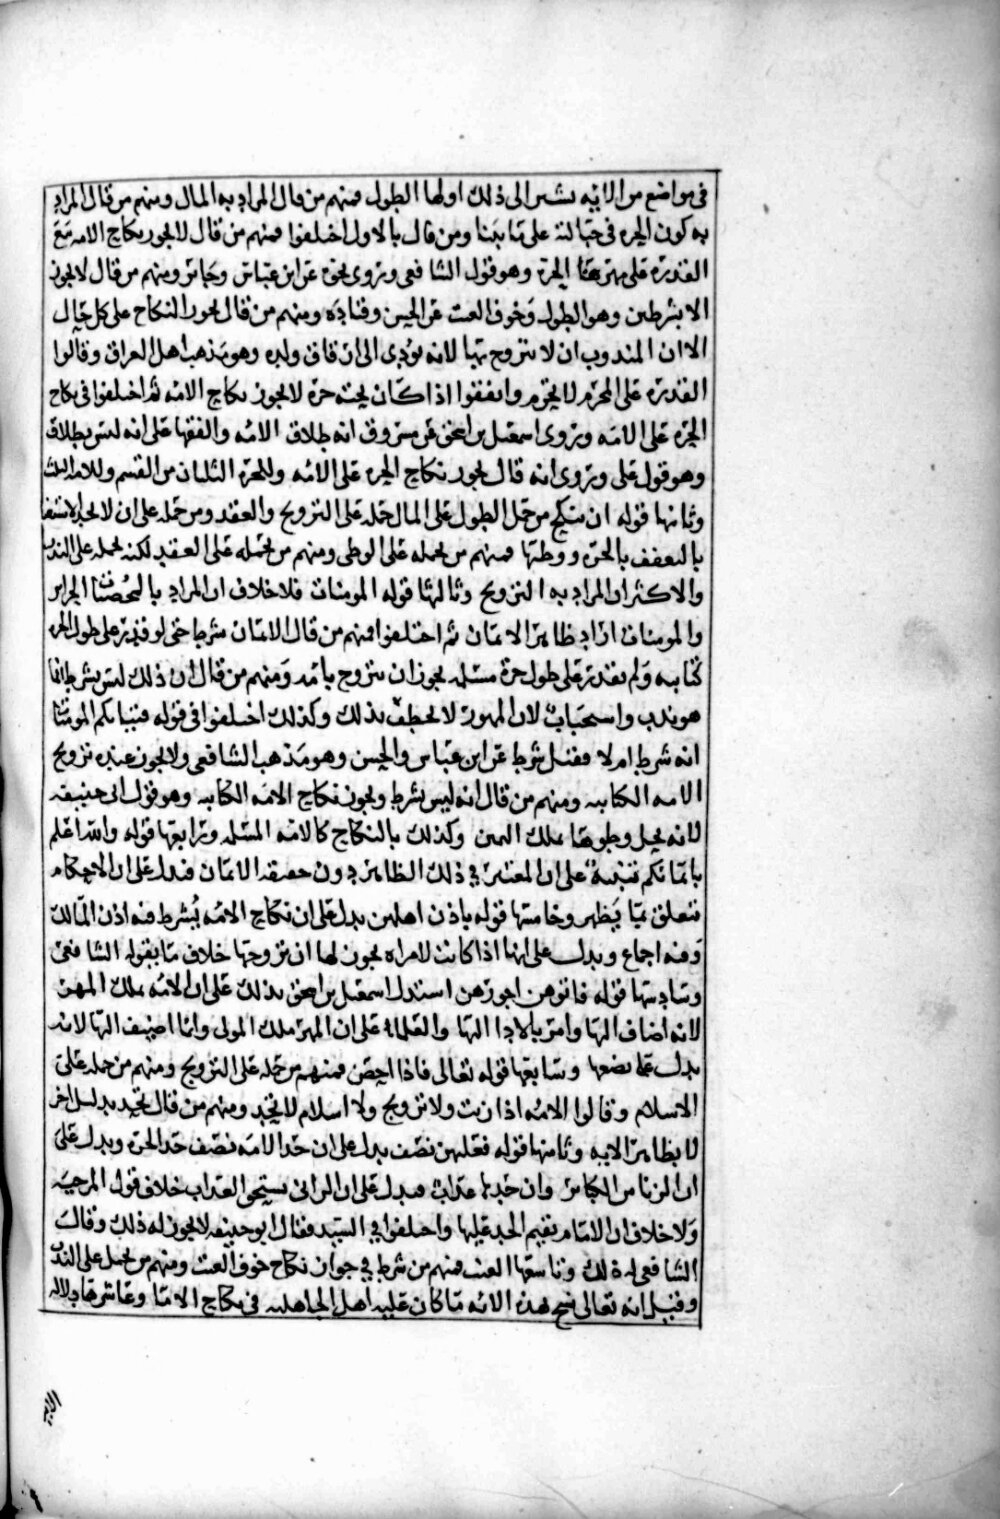 في مواضع من الآية نشير الى ذلك اولها الطول فمنهم من قال المراد به المال ومنهم من قال المراد
به كون الحرة في حبالته على ما بينا ومن قال بالاول اختلفوا فمنهم من قال لا يجوز نكاح الامه مع
القدرة على مهر هذا الحرة وهو قول الشافعي وروى نحوه عن ابن عباس وجابر ومنهم من قال لا يجوز
الا بشرطين وهو الطول وخوف العنت عن الحسن وقتاده ومنهم من قال يجوز النكاح على كل حال
الا ان المندوب ان لا يتزوج بها لانه يؤدي الى ارقاق ولده وهو مذهب اهل العراق وقالوا
القدرة على المحرم لا يحرم واتفقوا اذا كان تحته حرة لا يجوز نكاح الامه ثم اختلفوا في نكاح
الحرة على الامه وروى اسمعيل بن اسحق عن مسروق انه طلاق الامه والفقها على انه ليس بطلاق
وهو قول علي وروى انه قال يجوز نكاح الحره على الامه وللحرة الثلثان من القسم وللامه الثلث
وثانيها قوله ان ينكح من حمل الطول على المال حمله على التزويج والعقد ومن حمله على ان لا يجد الاستغنا
بالتعفف بالحرة ووطئها فمنهم من يحمله على الوطى ومنهم من يحمله على العقد لكنه يحمله على الندب
والاكثر ان المراد به التزويج وثالثها قوله المومنات فلا خلاف ان المراد بالمحصنات الحراير
والمومنات اراد ظاهر الايمان ثم اختلفوا فمنهم من قال الايمان شرط حتى لو قدر على طول الحرة
كتابيه ولم يقدر على طول حرة مسلمه يجوز ان يتزوج بامه ومنهم من قال ان ذلك ليس بشرط انما
هو ندب واستحباب لان المهور لا يختلف بذلك وكذلك اختلفوا في قوله فتياتكم المومنات
انه شرط ام لا فقيل شرط عن ابن عباس والحسن وهو مذهب الشافعي ولا يجوز عنده تزويج
الامه الكتابيه ومنهم من قال انه ليس بشرط ويجوز نكاح الامه الكتابيه وهو قول ابي حنيفه
لانه يحل وطوها بملك اليمين وكذلك بالنكاح كالامه المسلمه ورابعها قوله والله اعلم
بايمانكم تنبيه على ان المعتبر في ذلك الظاهر دون حقيقه الايمان فيدل على ان الاحكام
تتعلق بما يظهر وخامسها قوله باذن اهلهن يدل على ان نكاح الامه يشرط فيه اذن المالك
وفيه اجماع ويدل على انها اذا كانت لامراه يجوز لها ان تزوجها خلاف ما يقوله الشافعي
وسادسها قوله فاتوهن اجورهن استدل اسمعيل بن اسحق بذلك على ان الامه تملك المهر
لانه اضاف اليها وامر بالادا اليها والعلماء على ان المهر ملك المولى وانما اضيف اليها لانه
بدل عما بضعها وسابعها قوله تعالى فاذا احصن فمنهم من حمله على التزويج ومنهم من حمله على
الاسلام وقالوا الامه اذا زنت ولا تزويج ولا اسلام لا تحد ومنهم من قال تحد بدليل اخر
لا بظاهر الايه وثامنها قوله فعليهن نصف يدل على ان حد الامه نصف حد الحرة ويدل على
ان الزنا من الكبائر وان حدها عذاب فيدل على ان الزاني يستحق العذاب خلاف قول المرجيه
ولا خلاف ان الامام يقيم الحد عليها واختلفوا في السيد فقال ابو حنيفه لا يجوز له ذلك وقال
الشافعي له ذلك وتاسعها العنت فمنهم من شرط في جواز نكاح خوف العنت ومنهم من يحمل على الندب
وقيل انه تعالى نسخ بهذه الايه ما كان عليه اهل الجاهليه في نكاح الاما وعاشرها دلاله
الايه